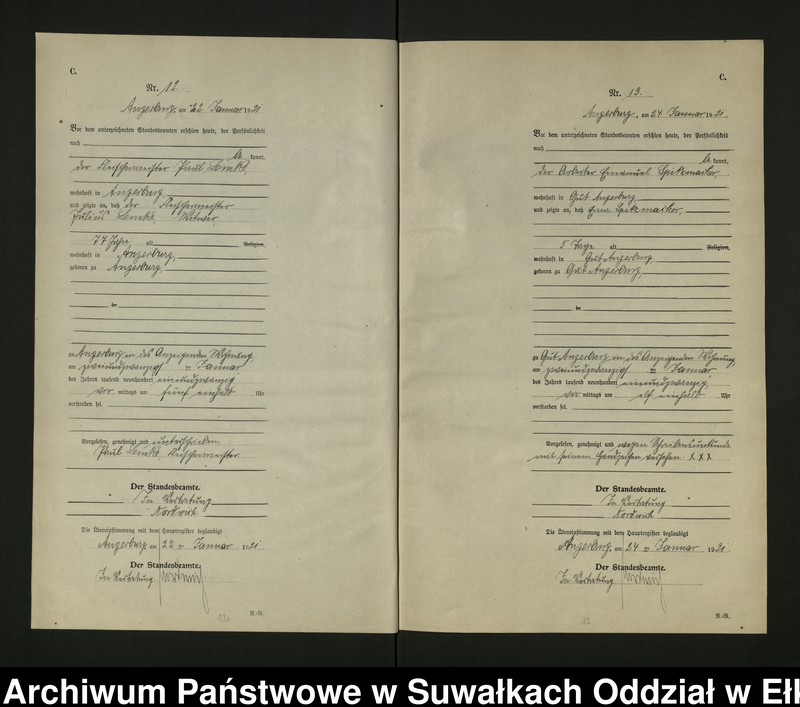 C.
Nr. 12
Angerburg, am 22 Januar 1921
Vor dem unterzeichneten Standesbeamten erschien heute, der Persönlichkeit
nach
be kannt,
der Fleischermeister Paul Lemke,
wohnhaft in Angerburg
und zeigte an, daß der Fleischermeister
Julius Lemke, Witwer,
77 Jahre alt, Religion,
wohnhaft in Angerburg,
geboren zu Angerburg,
zu Angerburg in des Anzeigenden Wohnung
am zweiundzwanzig = Januar
des Jahres tausend neunhundert einundzwanzig
vor mittags um fünf einhalb Uhr
verstorben sei.
Vorgelesen, genehmigt und unterschrieben
Paul Lemke, Fleischermeister.
Der Standesbeamte.
In Vertretung
Die Übereinstimmung mit dem Hauptregister beglaubigt
Angerburg am 22 = Januar 1921
Der Standesbeamte.
In Vertretung
R.-R.
C.
Nr. 13.
Angerburg, am 24 Januar 1921.
Vor dem unterzeichneten Standesbeamten erschien heute, der Persönlichkeit
nach
be kannt,
der Arbeiter Emanuel Spitzmacher,
wohnhaft in Gut Angerburg
und zeigte an, daß Spitzmacher,
5 Tage alt Religion,
wohnhaft in Gut Angerburg
geboren zu Gut Angerburg,
zu Gut Angerburg in des Anzeigenden Wohnung
am zweiundzwanzig = Januar
des Jahres tausend neunhundert einundzwanzig
vor mittags um elf einhalb Uhr
verstorben sei.
Vorgelesen, genehmigt und wegen Schreibensunkunde
mit seinem Handzeichen versehen. XXX
Der Standesbeamte.
In Vertretung
Die Übereinstimmung mit dem Hauptregister beglaubigt
Angerburg, am 24 = Januar 1921
Der Standesbeamte.
In Vertretung
13
R.-R.
Archiwum Państwowe w Suwałkach Oddział w Ełk